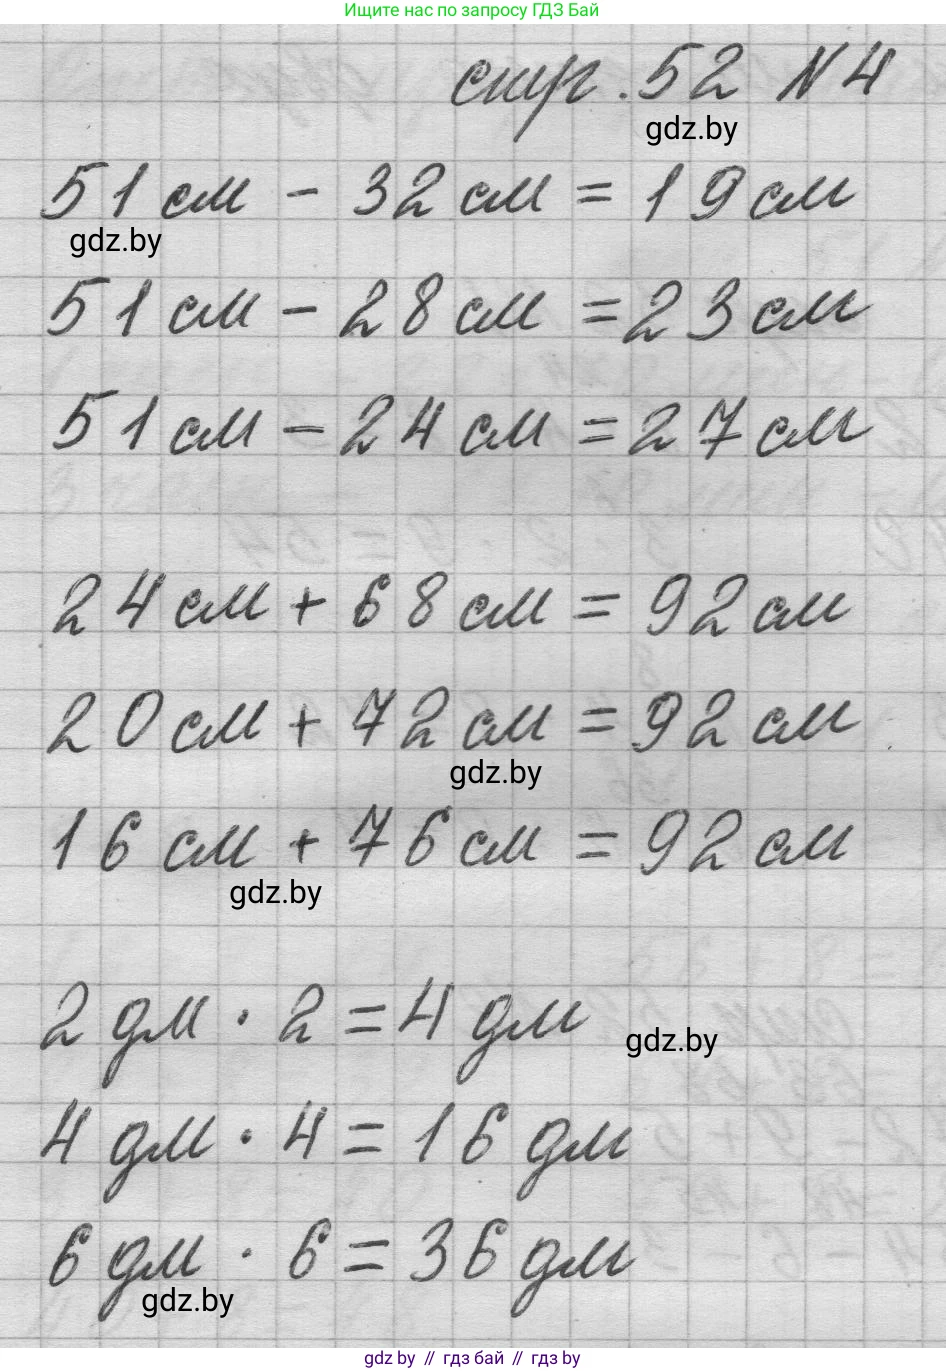 Ищите нас по запросу ГДЗ Бай
стр. 52 N 4
gdz.by
51 см - 32 см = 19 см
gdz.by
51 см - 28 см = 23 см
51 см - 24 см = 27 см
24 см + 68 см = 92 см
20 см + 72 см = 92 см
gdz.by
16 см + 76 см = 92 см
gdz.by
2 дм · 2 = 4 дм
gdz.by
4 дм · 4 = 16 дм
6 дм · 6 = 36 дм
gdz.by
gdz by // гдз бай // гдз by